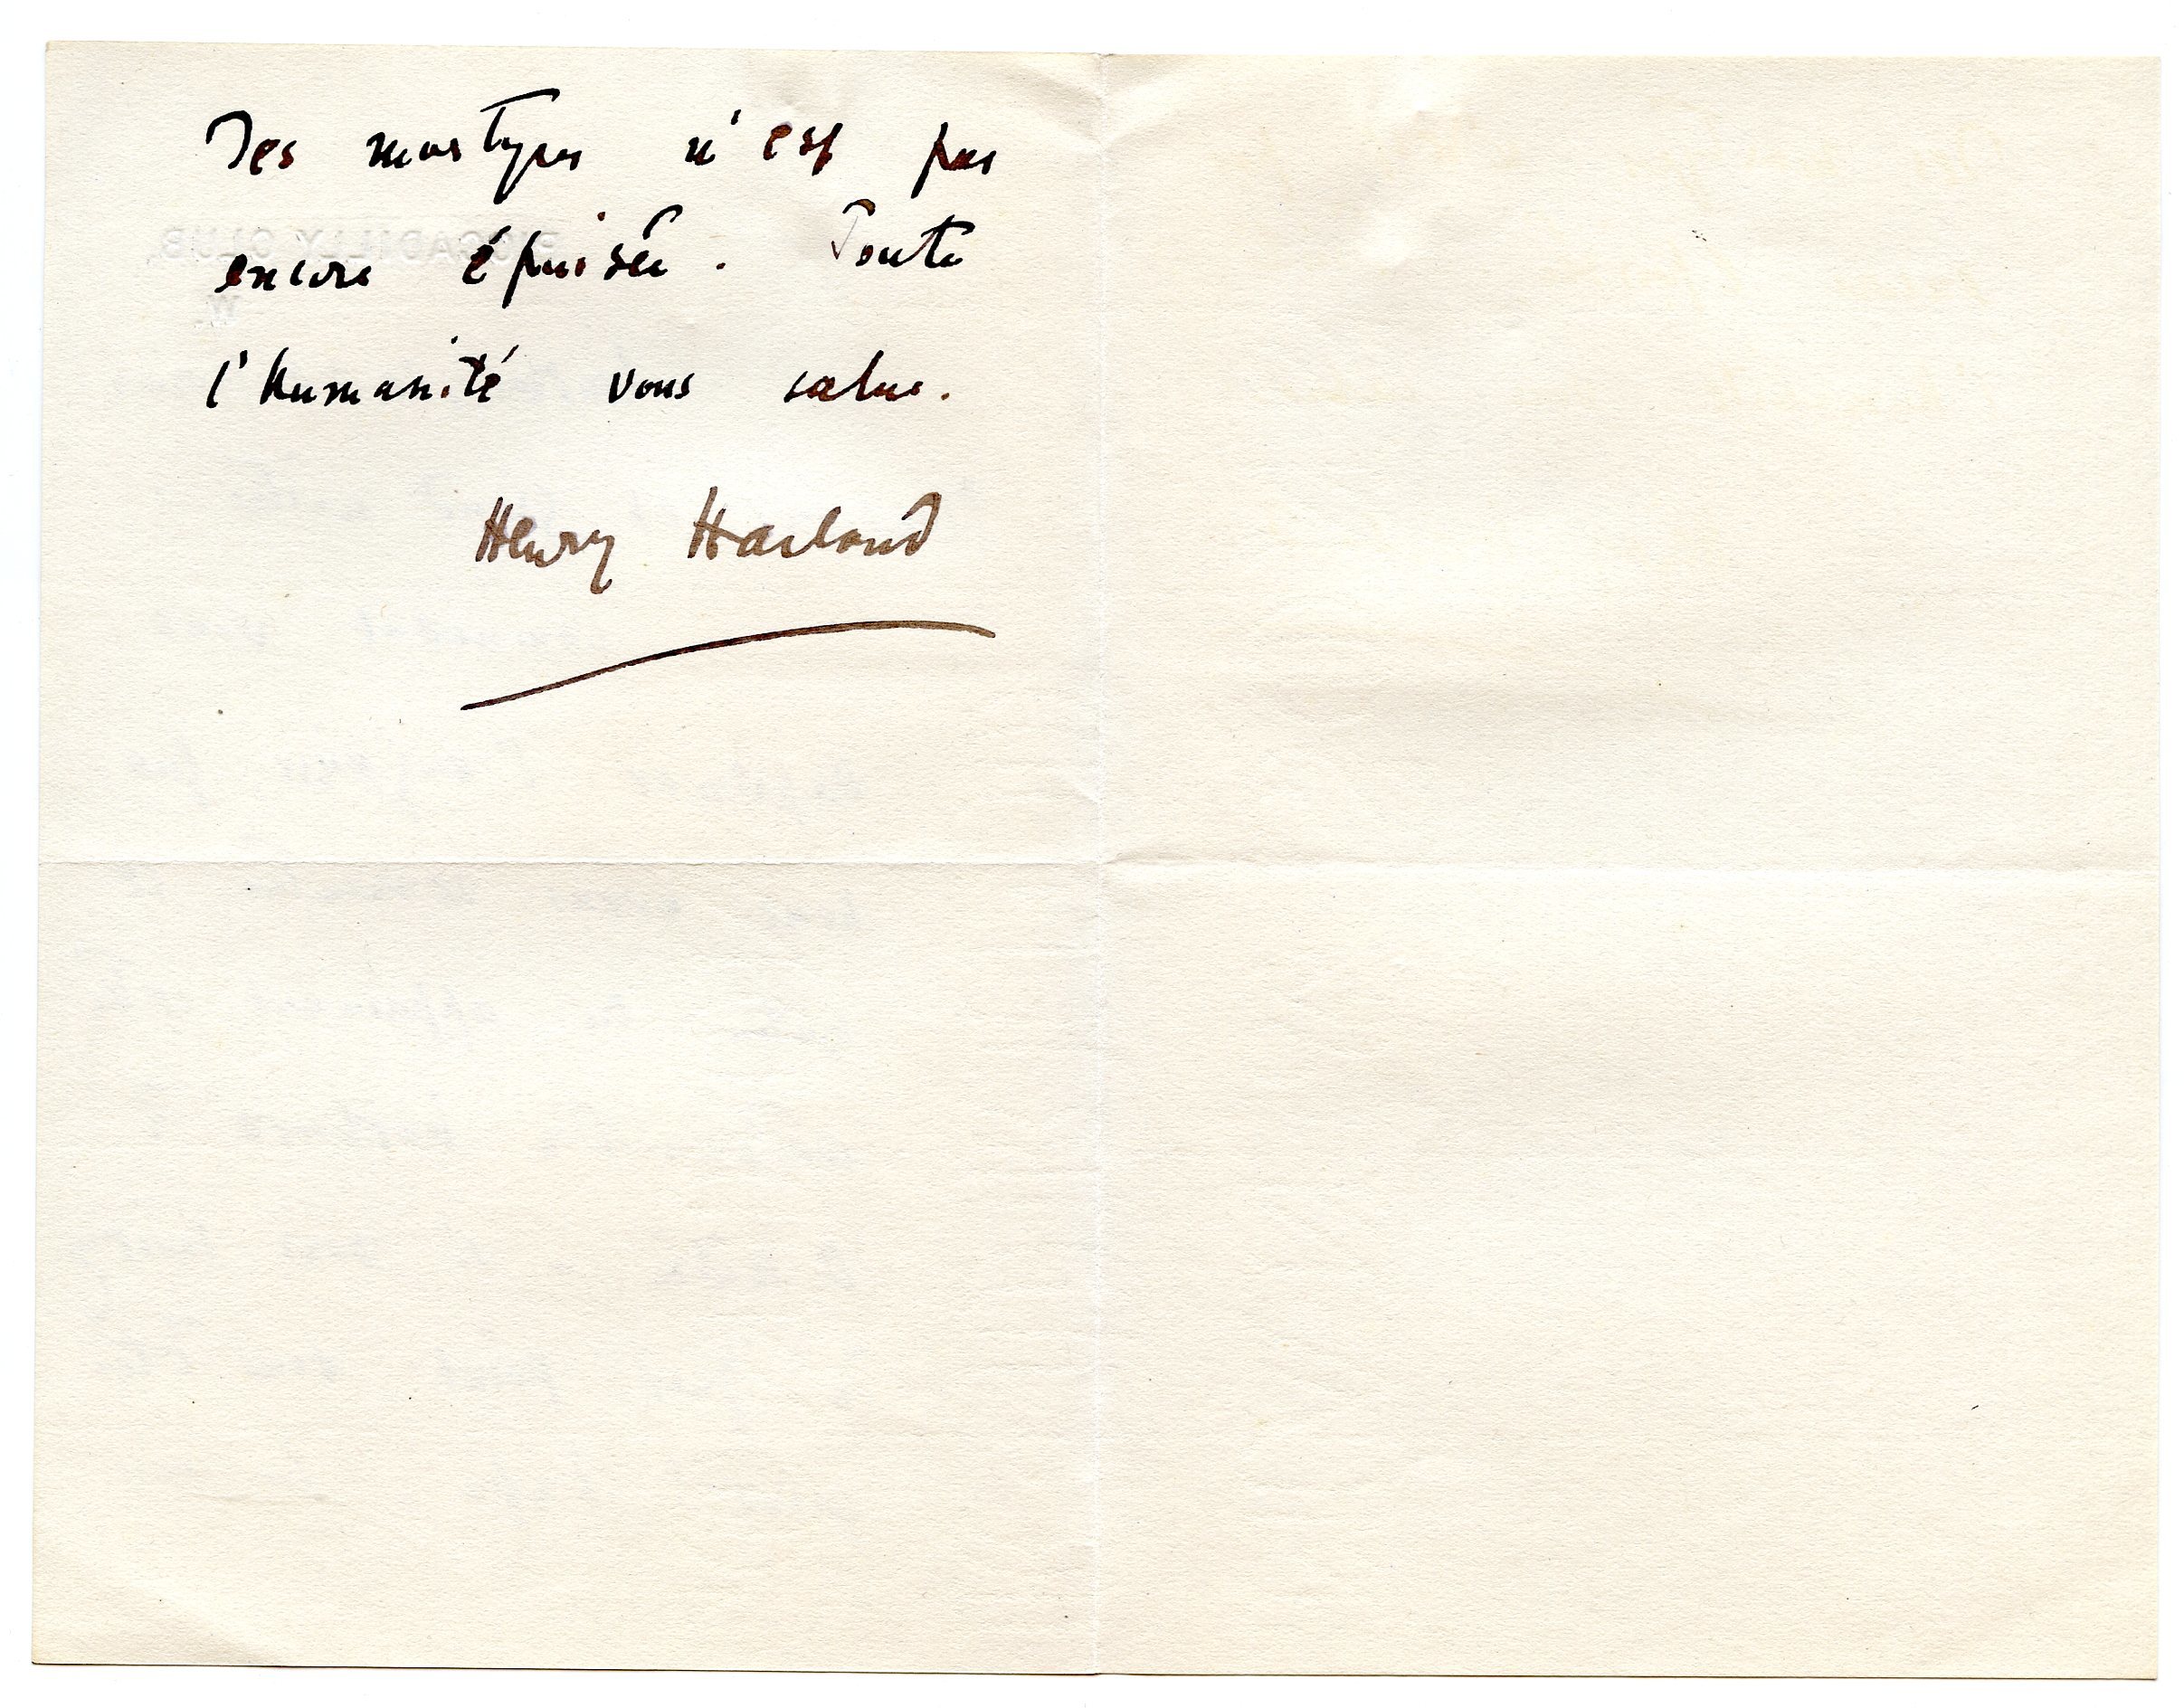 des martyrs n'est pas
encore épuisée. Toute
l'humanité vous salue.
Henry Harland
PICCADILLY CLUB,
W.